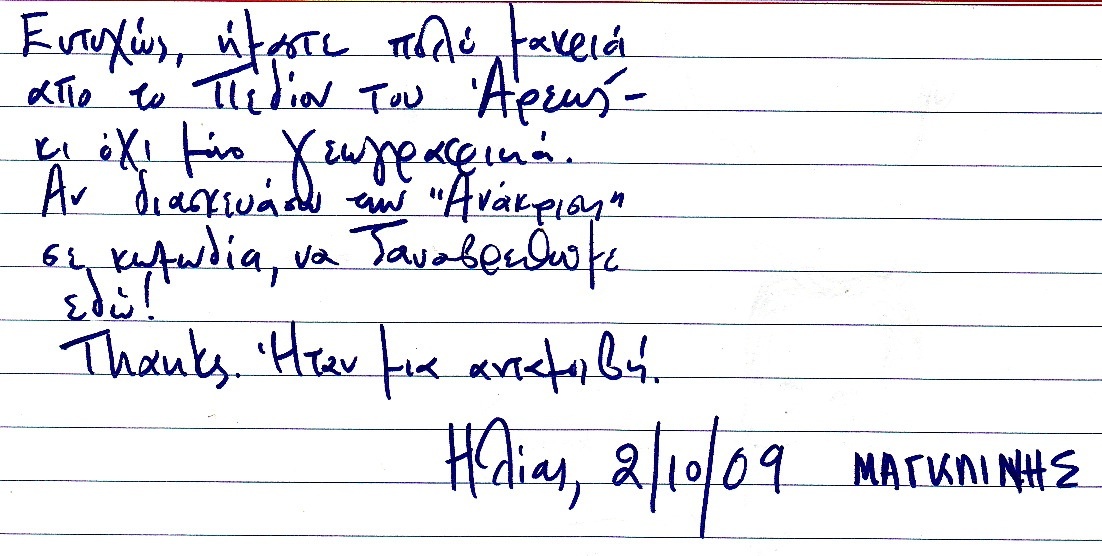 Ευτυχώς, ήμαστε πολύ μακριά
από το Πεδίον του Άρεως –
κι όχι μόνο γεωγραφικά.
Αν διασκευάσω την "Ανάκριση"
σε κωμωδία, να ξαναβρεθούμε
εδώ!
Thanks. Ήταν μια ανταμοιβή.
Ηλίας, 2/10/09 ΜΑΓΚΛΙΝΗΣ